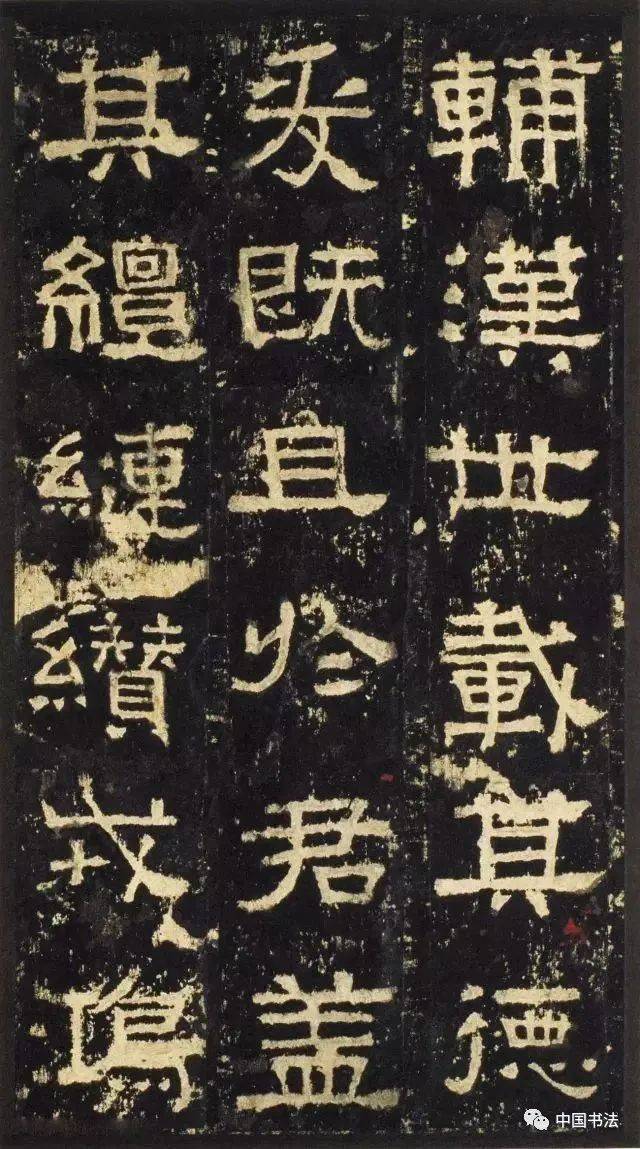 輔漢世載其德
爰既且於君蓋
其繵縺纘戎鴻
中国书法